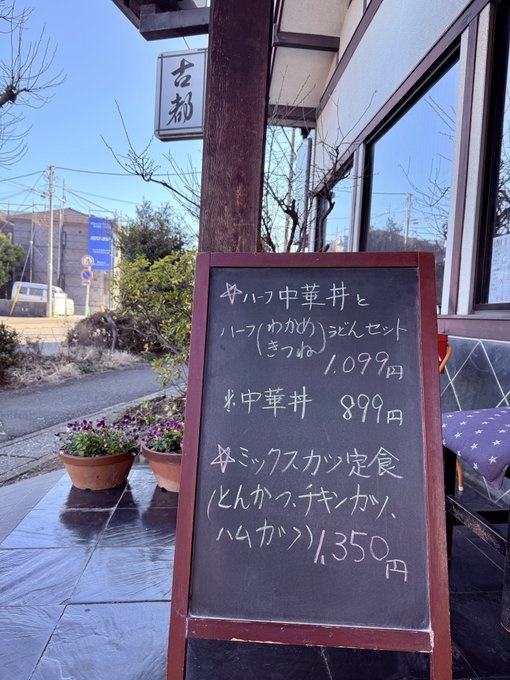 古都
☆ハーフ中華丼と
ハーフ(わかめ
きつね)うどんセット
1,099円
※中華丼 899円
☆ミックスカツ定食
(とんかつ、チキンカツ、
ハムカツ)1,350円